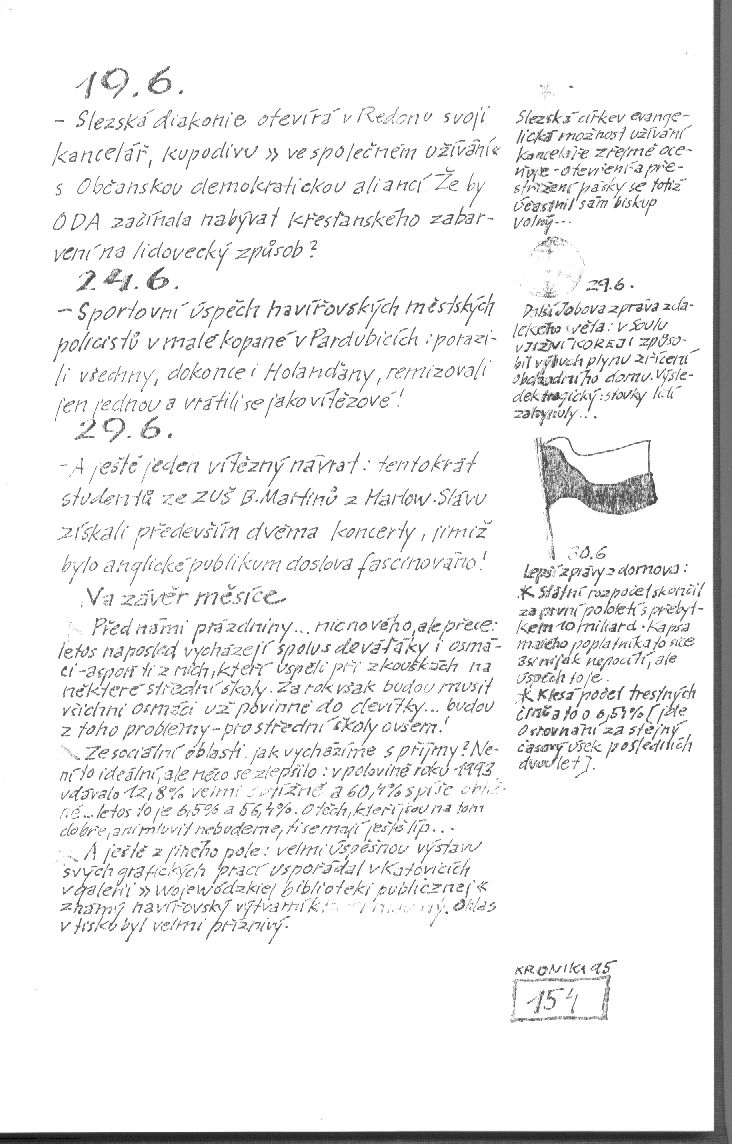 19.6.
- Slezská diakonie otevírá v Redonu svoji
kancelář, kupodivu » ve společném užívání «
s Občanskou demokratickou aliancí. Že by
ODA začínala nabývat křesťanského zabar-
vení na lidovecký způsob?
24.6.
- Sportovní úspěch havířovských městských
policistů v malé kopané v Pardubicích: porazi-
li všechny, dokonce i Holanďany, remizovali
jen jednou a vrátili se jako vítězové!
29.6.
- A ještě jeden vítězný návrat: tentokrát
studentů ze ZUŠ B. Martinů z Harlow. Slávu
získali především dvěma koncerty, jimiž
bylo anglické publikum doslova fascinováno!
Na závěr měsíce
Před námi prázdniny... nic nového, ale přece:
letos naposled vycházejí spolu s deváťáky i osmá-
ci - aspoň ti z nich, kteří uspěli při zkouškách na
některé střední školy. Za rok však budou muset
všichni osmáci už povinně do devítky... budou
z toho problémy - pro střední školy ovšem!
Ze sociální oblasti: jak vycházíme s příjmy? Ne-
ní to ideální, ale něco se zlepšilo: v polovině roku 1993
udávalo 12,8% velmi obtížně a 60,4% spíše obtíž-
ně... letos to je 6,5% a 56,4%. O těch, kteří jsou na tom
dobře, ani mluvit nebudeme, ti se mají ještě líp...
A ještě z jiného pole: velmi úspěšnou výstavu
svých grafických prací uspořádal v Katovicích
v galerii » Wojewódzkiej biblioteki publicznej «
známý havířovský výtvarník. Ohlas
v tisku byl velmi příznivý.
Slezská církev evange-
lická možnost užívání
kanceláře zřejmě oce-
nuje - otevření a pře-
střižení pásky se totiž
účastnil sám biskup
Volný...
29.6.
Další Jobova zpráva z da-
lekého světa: v Soulu
v JIŽNÍ KOREJI způso-
bil výbuch plynu zřícení
obchodního domu. Výsle-
dek tragický: stovky lidí
zahynuly...
30.6
Lepší zprávy z domova:
* Státní rozpočet skončil
za první pololetí s přebyt-
kem 10 miliard. Kapsa
malého poplatníka to sice
asi nijak nepocítí, ale
úspěch to je.
* Klesá počet trestných
činů a to o 6,51% [jde
o srovnání za stejný
časový úsek posledních
dvou let].
KRONIKA 95
154